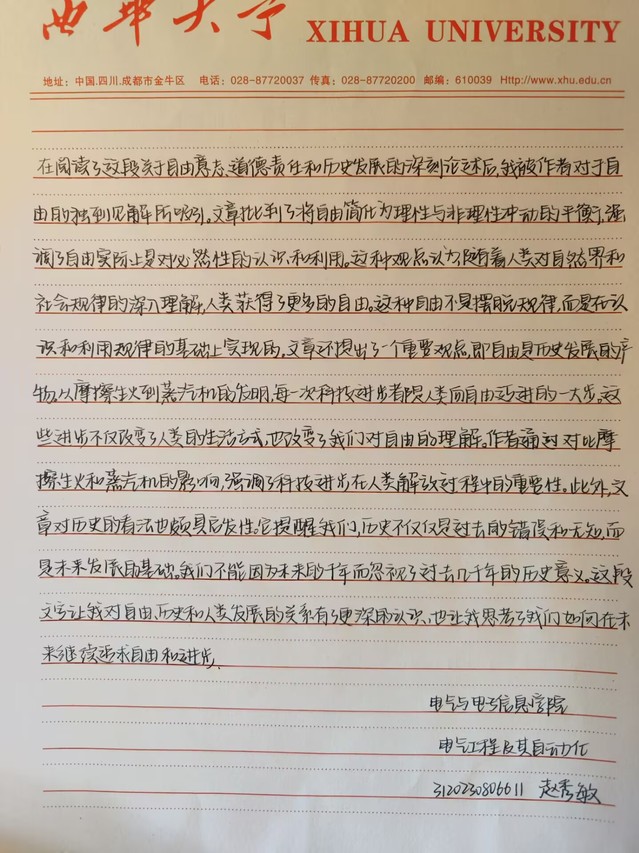 西华大学 XIHUA UNIVERSITY
地址：中国.四川.成都市金牛区 电话：028-87720037 传真：028-87720200 邮编：610039 Http://www.xhu.edu.cn
在阅读了这段关于自由意志、道德责任和历史发展的深刻论述后，我被作者对于自
由的独到见解所吸引。文章批判了将自由简化为理性与非理性冲动的平衡，强
调了自由实际上是对必然性的认识和利用。这种观点认为，随着人类对自然界和
社会规律的深入理解，人类获得了更多的自由。这种自由不是摆脱规律，而是在认
识和利用规律的基础上实现的。文章还提出了一个重要观点，即自由是历史发展的产
物。从摩擦生火到蒸汽机的发明，每一次科技进步都是人类向自由迈进的一大步。这
些进步不仅改变了人类的生活方式，也改变了我们对自由的理解。作者通过对比摩
擦生火和蒸汽机的影响，强调了科技进步在人类解放过程中的重要性。此外，文
章对历史的看法也颇具启发性。它提醒我们，历史不仅仅是过去的错误和无知，而
是未来发展的基础。我们不能因为未来的千年而忽视了过去几千年的历史意义。这段
文字让我对自由、历史和人类发展的关系有了更深的认识，也让我思考了我们如何在未
来继续追求自由和进步。
电气与电子信息学院
电气工程及其自动化
3120230806611 赵秀敏